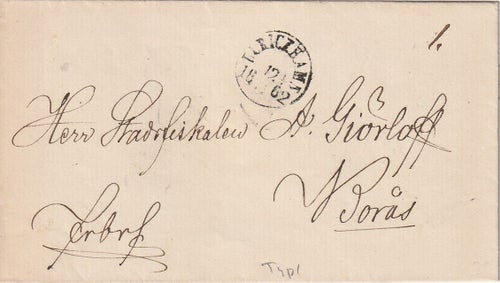 1.
ULRICEHAMN
12
18 62
Herr Stadsfiskalen A. Giörloff
Borås
Frbrf
Typ 1